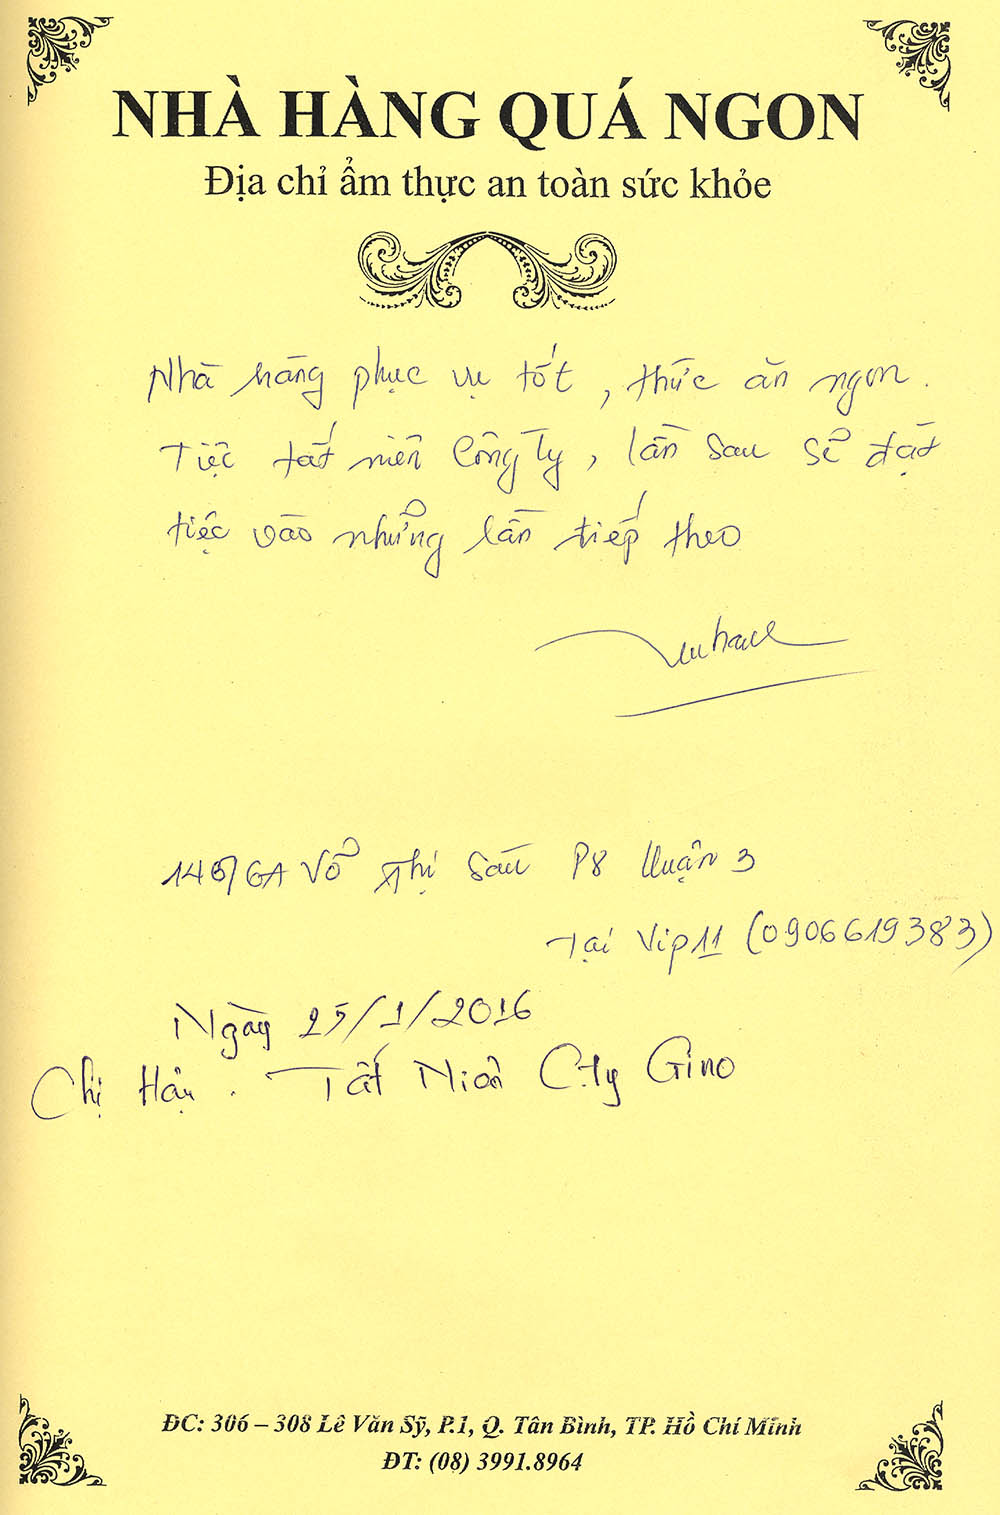 NHÀ HÀNG QUÁ NGON
Địa chỉ ẩm thực an toàn sức khỏe
Nhà hàng phục vụ tốt, thức ăn ngon.
Tiệc tất niên Công Ty, lần sau sẽ đặt
tiệc vào những lần tiếp theo
Võ Thị Sáu P8 Quận 3
Tại Vip 11 (0906619383)
Ngày 25/1/2016
Chị Hậu. Tất Niên Cty Gino
ĐC: 306 – 308 Lê Văn Sỹ, P.1, Q. Tân Bình, TP. Hồ Chí Minh
ĐT: (08) 3991.8964